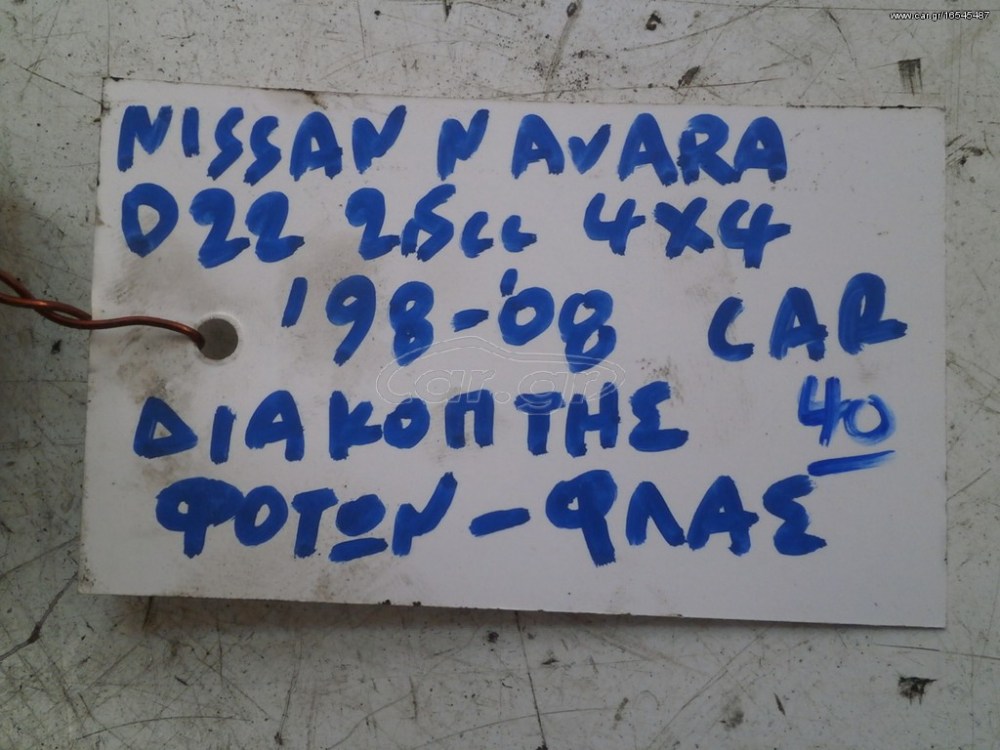 www.car.gr/16545487
NISSAN NAVARA
D22 25cc 4X4
'98-'08 CAR
ΔΙΑΚΟΠΤΗΣ 40
ΦΟΤΩΝ - ΦΛΑΣ
car.gr